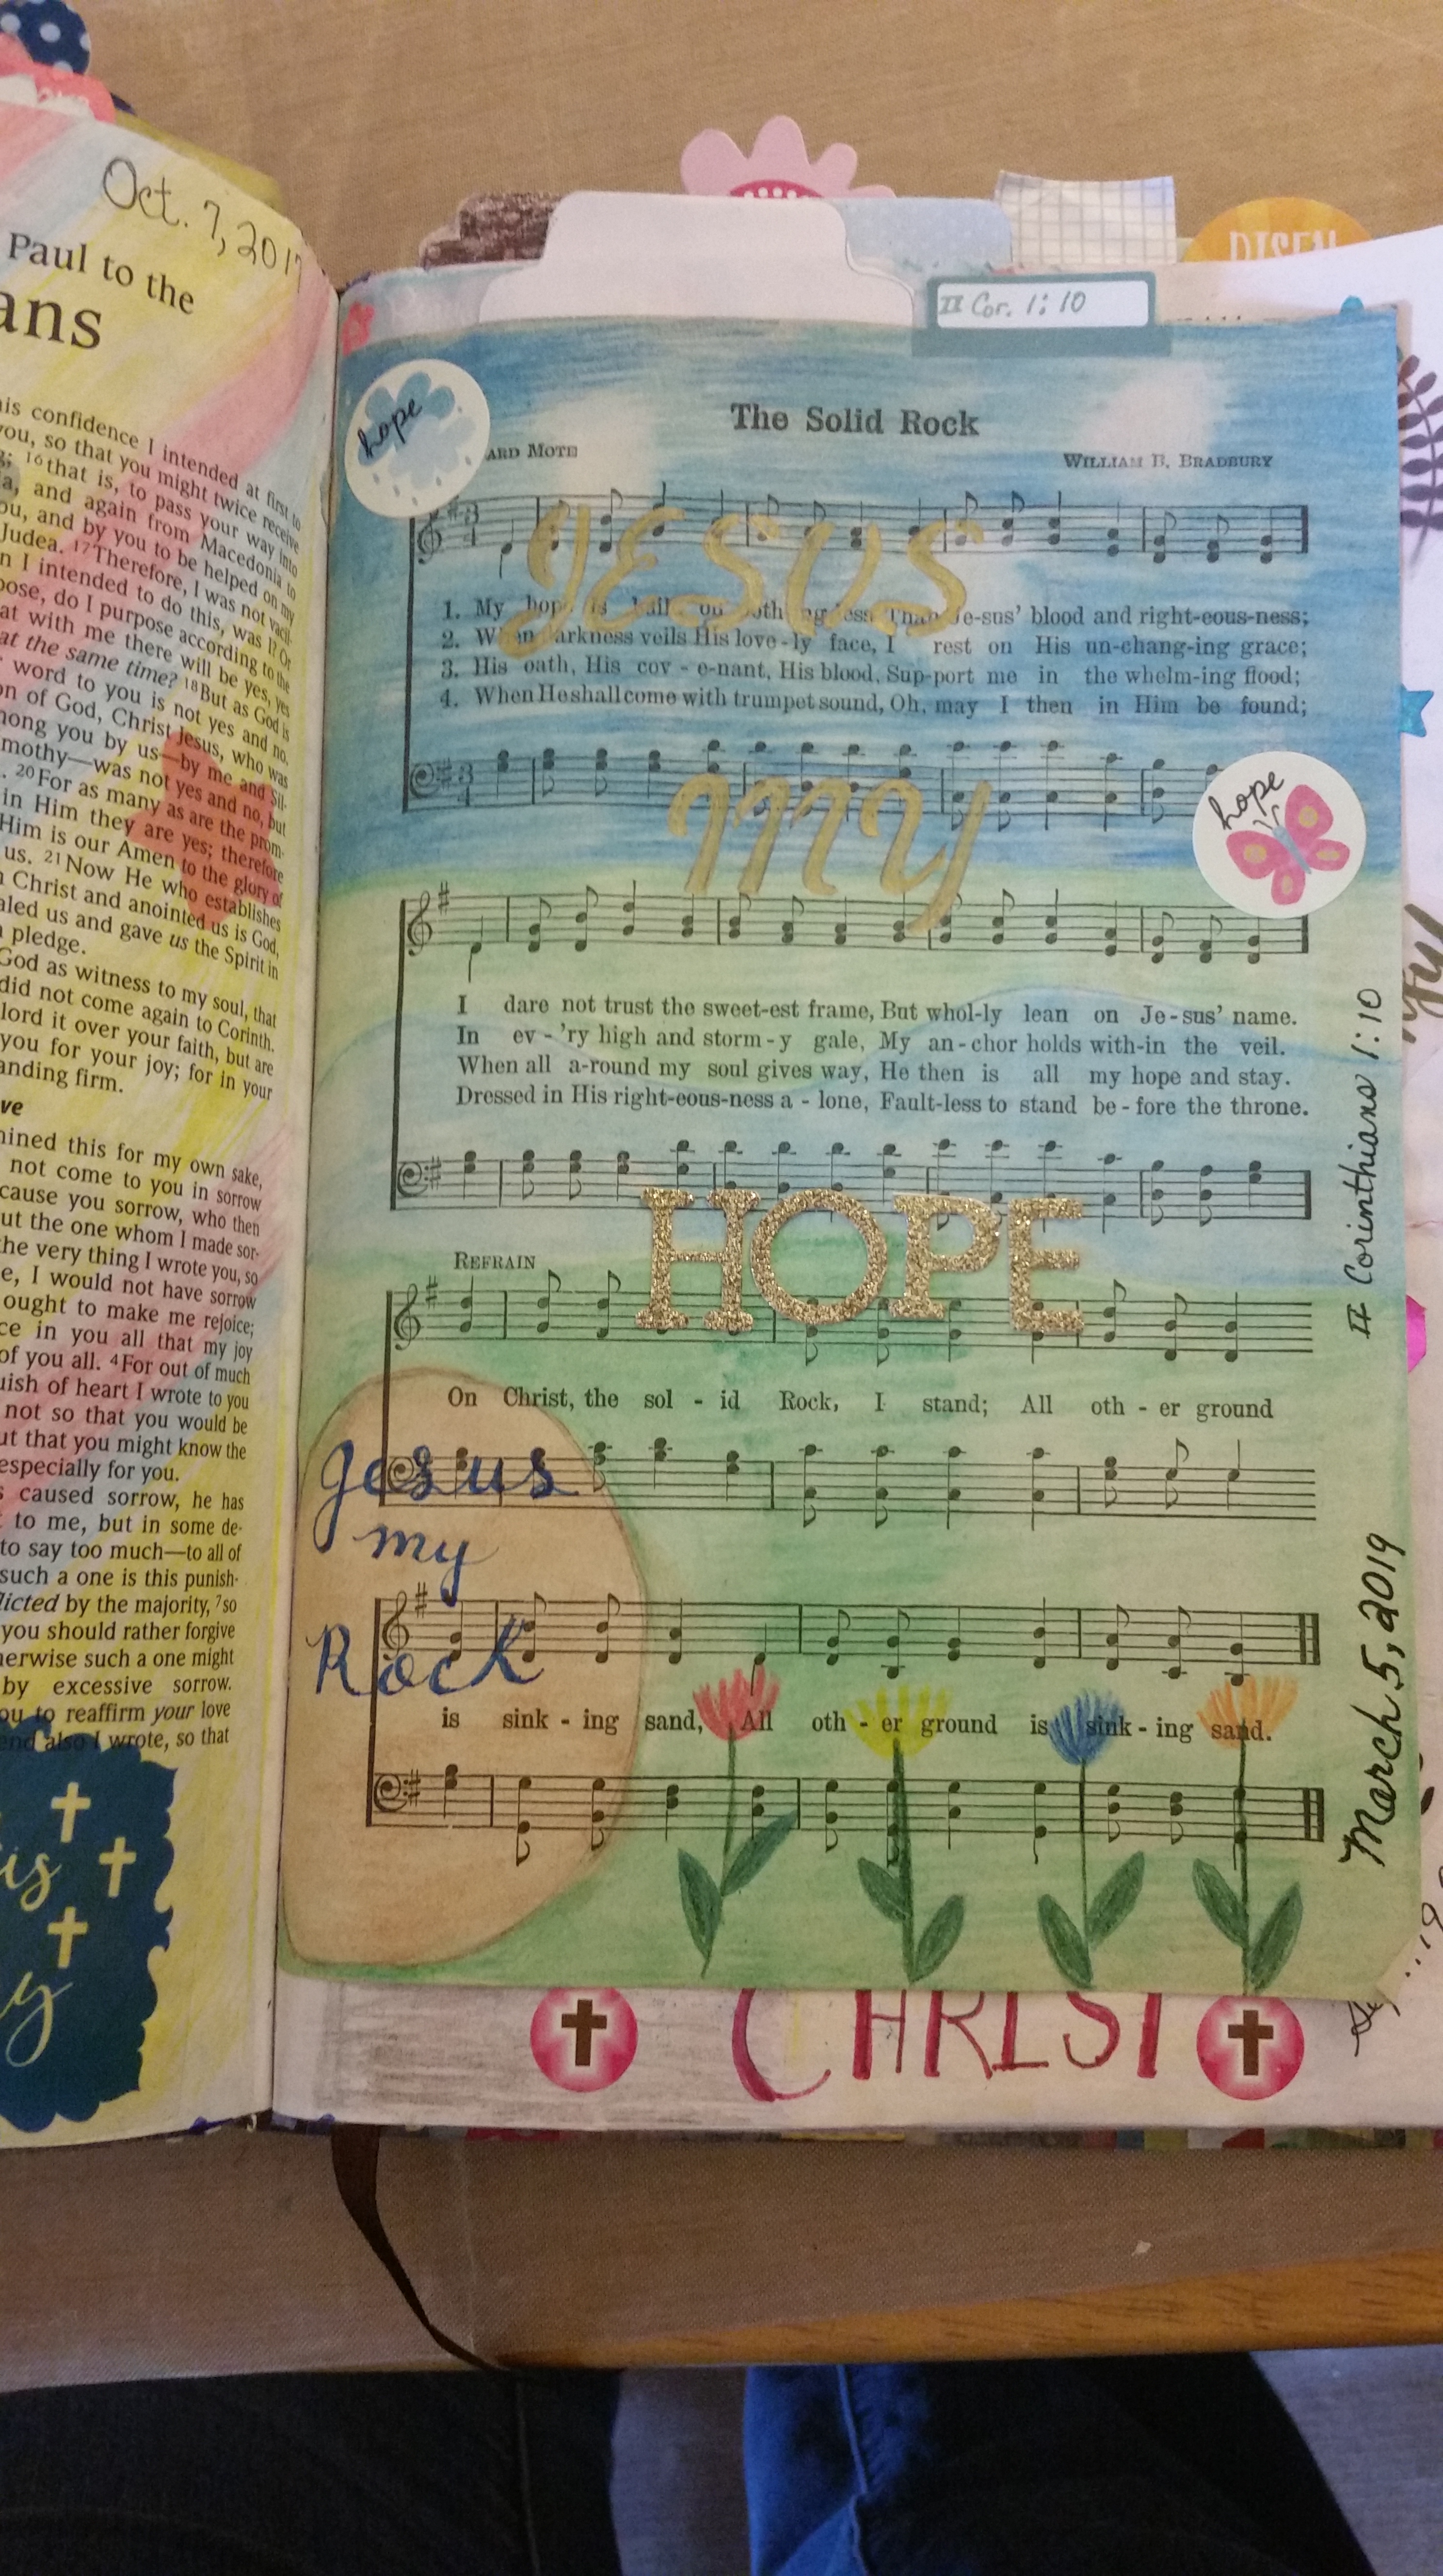 Oct. 7, 2017
Paul to the
ans
his confidence I intended at first to
you, so that you might twice receive
16 that is, to pass your way into
and again from Macedonia to
ou, and by you to be helped on my
Judea. 17 Therefore, I was not vacil-
n I intended to do this, was I? Or
pose, do I purpose according to the
at with me there will be yes, yes
at the same time? 18 But as God is
word to you is not yes and no.
on of God, Christ Jesus, who was
mong you by us—by me and Sil-
mothy—was not yes and no, but
. 20 For as many as are the prom-
in Him they are yes; therefore
Him is our Amen to the glory of
us. 21 Now He who establishes
Christ and anointed us is God,
aled us and gave us the Spirit in
pledge.
God as witness to my soul, that
did not come again to Corinth.
lord it over your faith, but are
you for your joy; for in your
anding firm.
ve
mined this for my own sake,
not come to you in sorrow
cause you sorrow, who then
ut the one whom I made sor-
the very thing I wrote you, so
e, I would not have sorrow
ought to make me rejoice;
ce in you all that my joy
of you all. 4 For out of much
uish of heart I wrote to you
not so that you would be
ut that you might know the
especially for you.
s caused sorrow, he has
to me, but in some de-
to say too much—to all of
such a one is this punish-
licted by the majority, 7 so
you should rather forgive
herwise such a one might
by excessive sorrow.
ou to reaffirm your love
end also I wrote, so that
is
y
RISEN
II Cor. 1:10
hope
The Solid Rock
ARD MOTE
WILLIAM B. BRADBURY
JESUS
1. My hope is built on nothing less Than Je-sus' blood and right-eous-ness;
2. When darkness veils His love-ly face, I rest on His un-chang-ing grace;
3. His oath, His cov-e-nant, His blood, Sup-port me in the whelm-ing flood;
4. When He shall come with trumpet sound, Oh, may I then in Him be found;
my
hope
I dare not trust the sweet-est frame, But whol-ly lean on Je-sus' name.
In ev-'ry high and storm-y gale, My an-chor holds with-in the veil.
When all a-round my soul gives way, He then is all my hope and stay.
Dressed in His right-eous-ness a-lone, Fault-less to stand be-fore the throne.
HOPE
REFRAIN
On Christ, the sol-id Rock, I stand; All oth-er ground
Jesus
my
Rock
is sink-ing sand, All oth-er ground is sink-ing sand.
II Corinthians 1:10
March 5, 2019
CHRIST